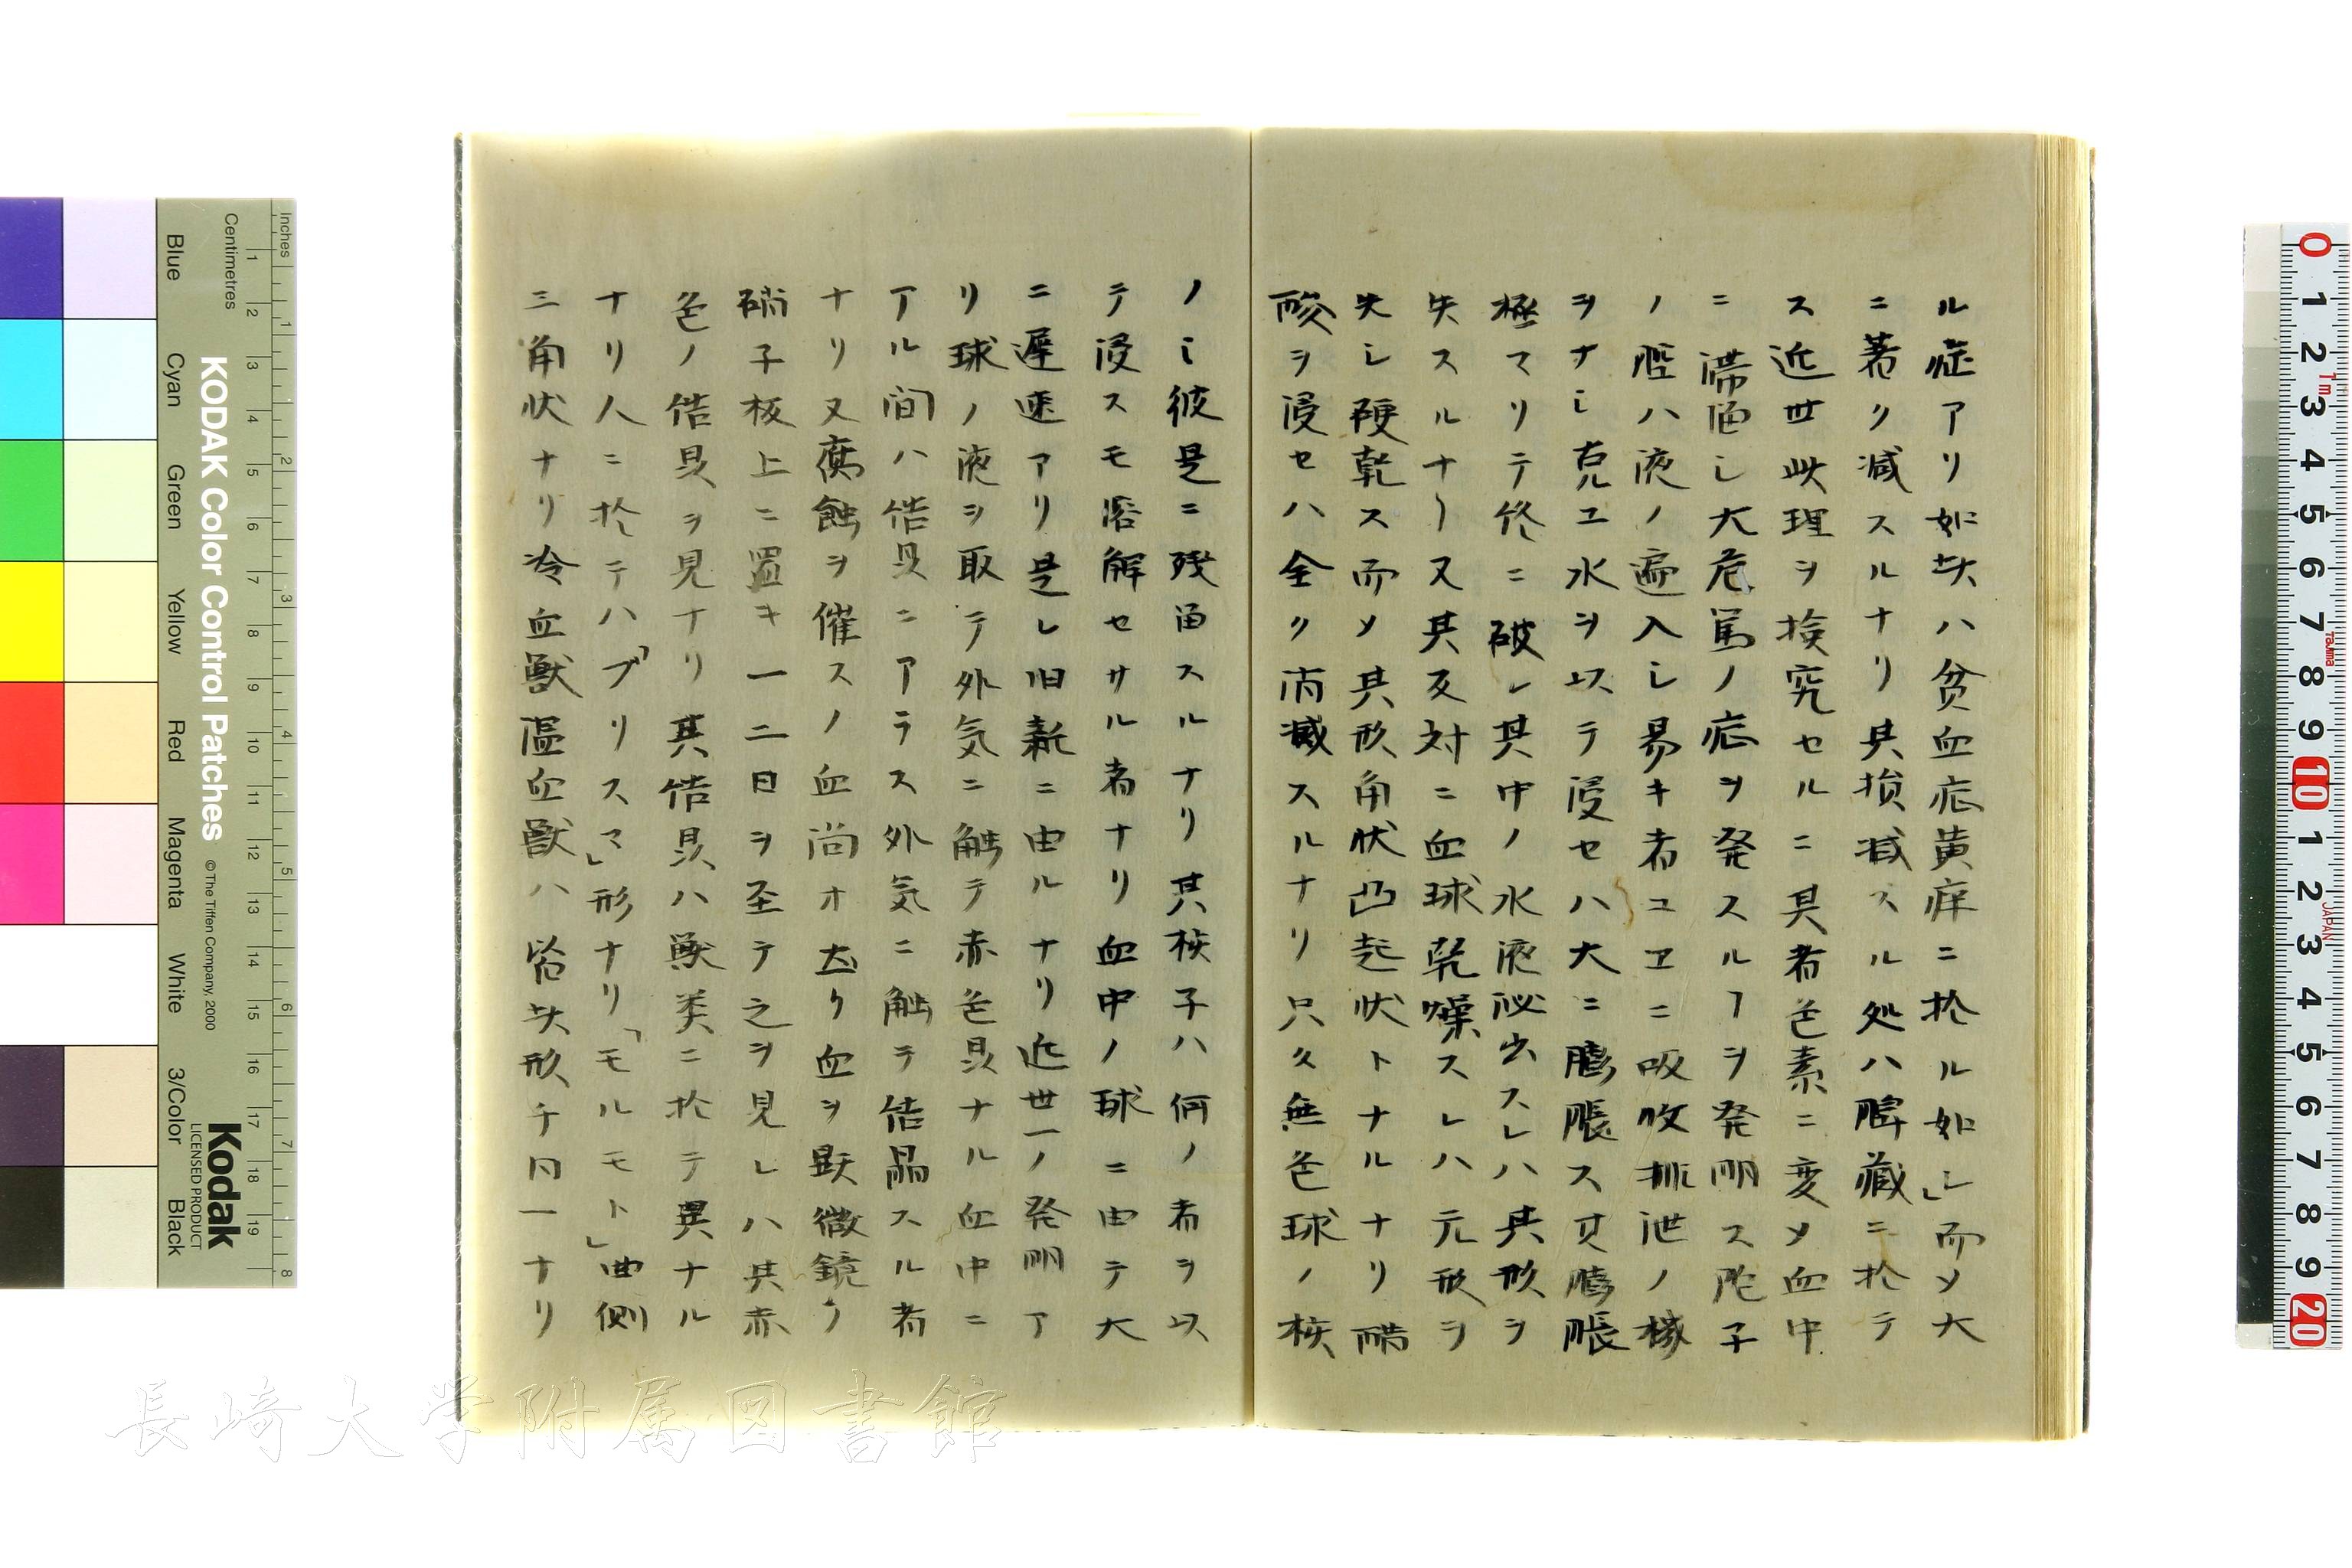 ル症アリ如此ハ貧血症黄痒ニ於ル如シ」而メ大
ニ著ク減スルナリ其損減スル処ハ脾蔵ニ於テ
ス近世此理ヲ検究セルニ其者色素ニ変メ血中
ニ滞留シ大危篤ノ症ヲ発スルヿヲ発明ス陀子
ノ腔ハ液ノ遍入シ易キ者ユヱニ吸收排泄ノ機
ヲナシ克ユ水ヲ以テ浸セハ大ニ膨脹ス其膨脹
極マリテ終ニ破レ其中ノ水液泌出スレハ其形ヲ
失スルナリ又其反対ニ血球乾燥スレハ元形ヲ
失シ硬乾ス而メ其形角状凸起状トナルナリ醋
酸ヲ浸セハ全ク消滅スルナリ只久無色球ノ核
ノミ彼是ニ残留スルナリ其核子ハ何ノ者ヲ以
テ浸スモ溶解セサル者ナリ血中ノ球ニ由テ大
ニ遅速アリ是レ旧新ニ由ルナリ近世一ノ発明ア
リ球ノ液ヲ取テ外気ニ触テ赤色晶ナル血中ニ
アル間ハ結晶ニアラス外気ニ触テ結晶スル者
ナリ又腐蝕ヲ催スノ血尚オ宜り血ヲ顕微鏡ノ
硝子板上ニ置キ一二日ヲ至テ之ヲ見レハ其赤
色ノ結晶ヲ見ナリ其結晶ハ獣類ニ於テ異ナル
ナリ人ニ於テハ「ブリスマ」形ナリ「モルモト」曲側
三角状ナリ冷血獣温血獣ハ皆此形チ同一ナリ
Inches
Centimetres
KODAK Color Control Patches
© The Tiffen Company, 2000
Kodak
LICENSED PRODUCT
Blue
Cyan
Green
Yellow
Red
Magenta
White
3/Color
Black
長崎大学附属図書館